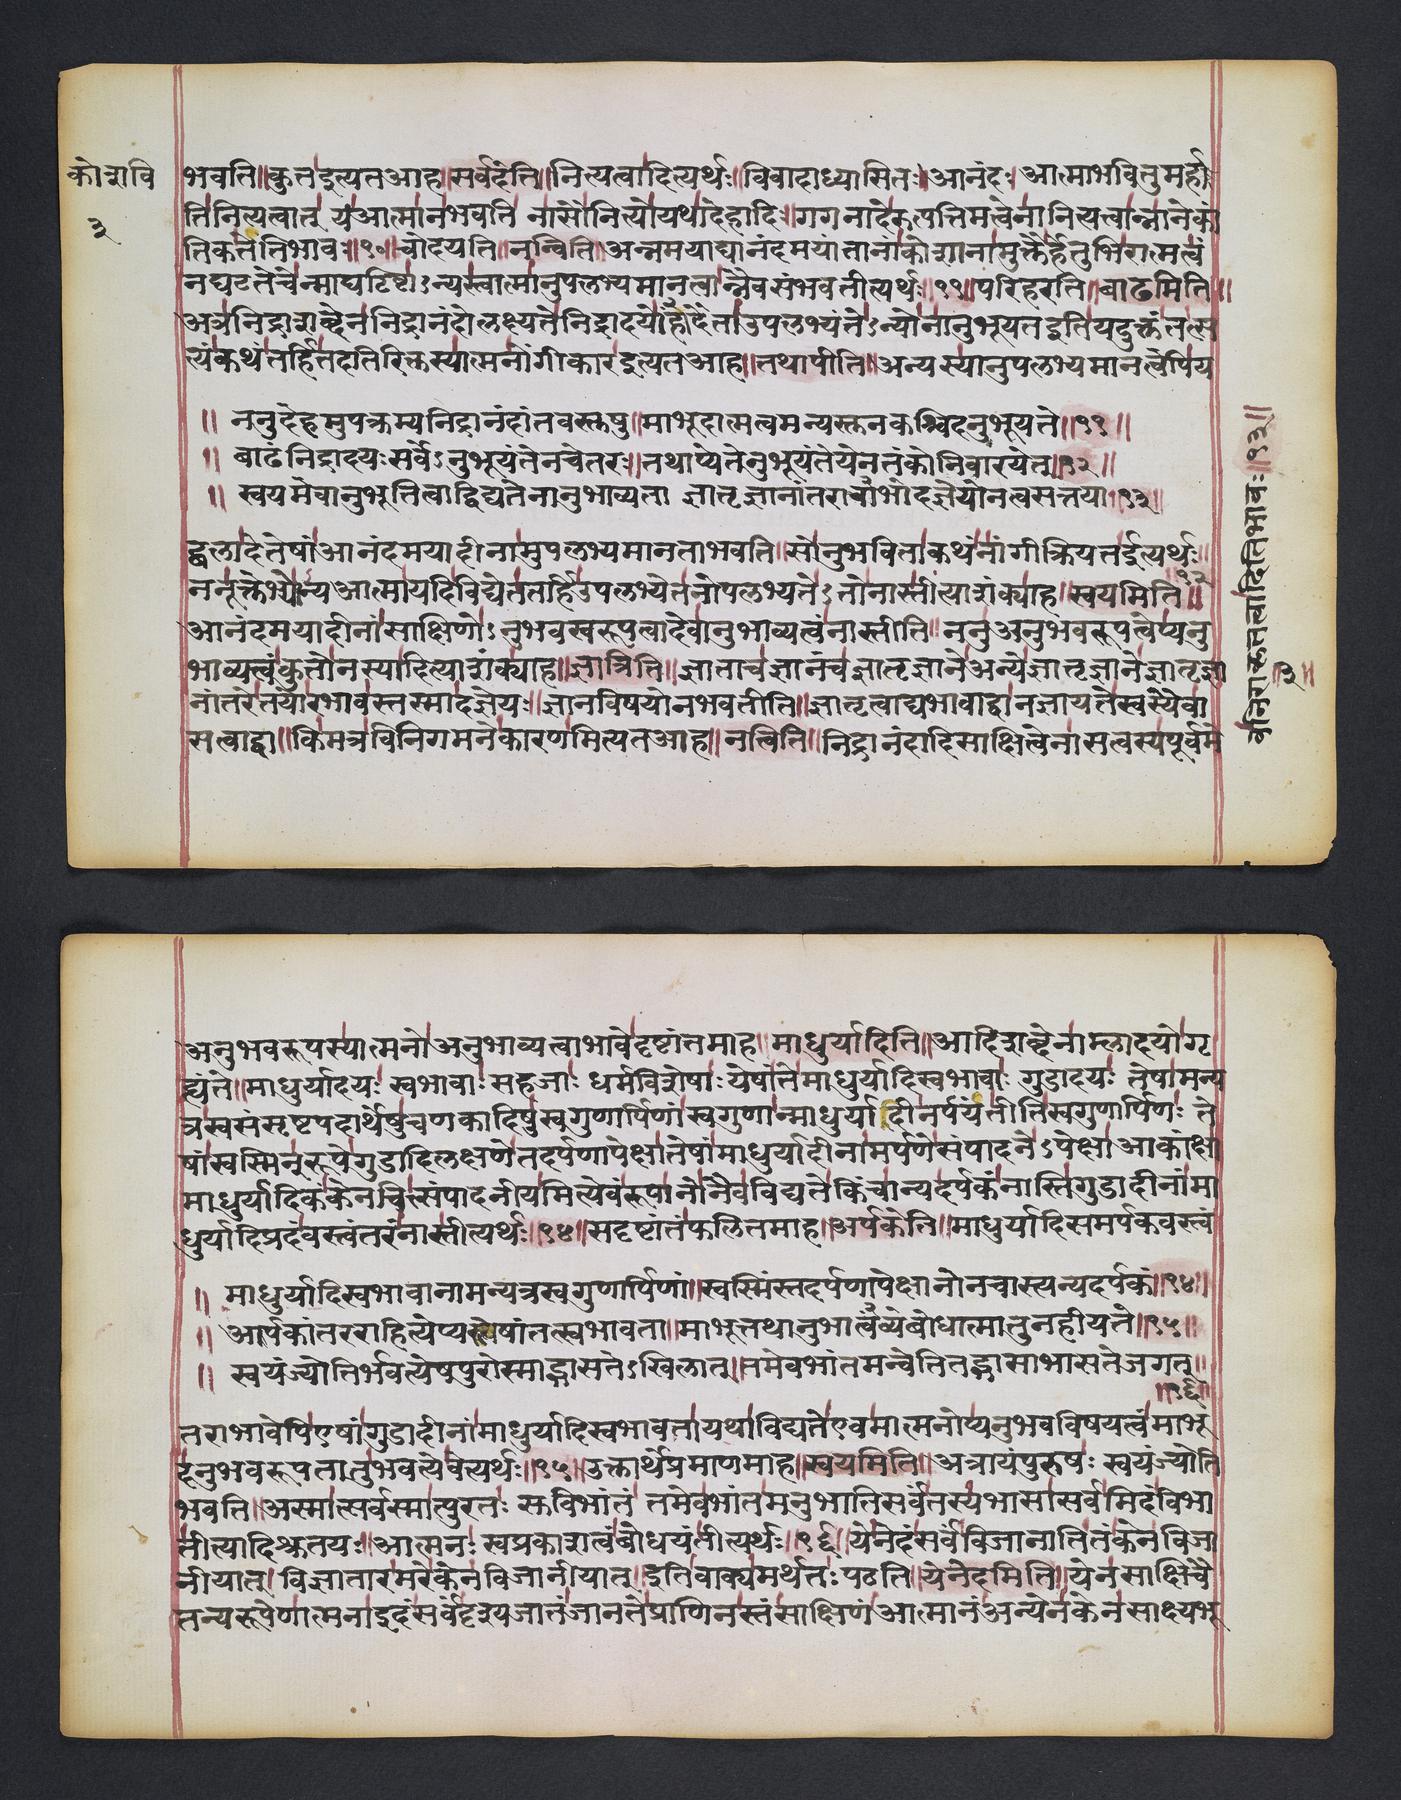 कोशवि
३
भवति॥कुतइत्यतआह॥सर्वदेति॥नित्यत्वादित्यर्थः॥विवादाध्यासितः॥आनंदः॥आत्माभवितुमर्ह
तिनित्यत्वात् यआत्मानभवति नासौनित्योयथादेहादिः॥गगनादेरुत्पत्तिमत्वेनानित्यत्वान्नानेकां
तिकतेतिभावः॥१०॥चोदयति॥नन्विति॥अन्नमयाद्यानंदमयांतानांकोशानामुक्तैर्हेतुभिरात्मत्वं
नघटतेचेन्माघटिष्टाऽन्यस्यात्मानुपलभ्यमानत्वान्नैवसंभवतीत्यर्थः॥११॥परिहरति॥बाढमिति॥
अत्रनिद्राशब्देननिद्रानंदोलक्ष्यतेनिद्रादयोदेहांताउपलभ्यंतेऽन्योनानुभूयतइतियदुक्तंतत्स
त्यंकथंतर्हितदतिरिक्तस्यात्मनोंगीकारइत्यतआह॥तथापीति॥अन्यस्यानुपलभ्यमानत्वेपिय
॥ ननुदेहमुपक्रम्यनिद्रानंदांतवस्तुषु॥माभूदात्मत्वमन्यस्तुनकश्चिदनुभूयते॥११॥
॥ बाढंनिद्रादयःसर्वेऽनुभूयंतेनचेतरः॥तथाप्येतेनुभूयंतेयेनतंकोनिवारयेत्॥१२॥
॥ स्वयमेवानुभूतित्वाद्विद्यतेनानुभाव्यता ज्ञातृज्ञानांतराभावादज्ञेयोनत्वसत्तया॥१३॥
द्बलादेतेषांआनंदमयादीनामुपलभ्यमानताभवति॥सोनुभविताकथंनांगीक्रियतइत्यर्थः॥
१२
ननूक्तेभ्योन्यआत्मायदिविद्येततर्हिउपलभ्येतनोपलभ्यतेऽतोनास्तीत्याशंक्याह॥स्वयमिति॥
आनंदमयादीनांसाक्षिणोऽनुभवस्वरूपत्वादेवानुभाव्यत्वंनास्तीति॥ननुअनुभवरूपत्वेप्यनु
भाव्यत्वंकुतोनस्यादित्याशंक्याह॥ज्ञात्रिति॥ज्ञाताचज्ञानंचज्ञातृज्ञानेअन्येज्ञातृज्ञानेज्ञातृज्ञा
नांतरेतयोरभावस्तस्मादज्ञेयः॥ज्ञानविषयोनभवतीति॥ज्ञातृत्वाद्यभावाद्वानज्ञायतेस्वस्यैवा
सत्वाद्वा॥किमत्रविनिगमनेकारणमित्यतआह॥नत्विति॥निद्रानंदादिसाक्षित्वेनासत्वस्यपूर्वमे
वनिराकृतत्वादितिभावः॥१३॥
॥३॥
अनुभवरूपस्यात्मनोअनुभाव्यत्वाभावेदृष्टांतमाह॥माधुर्यादिति॥आदिशब्देनाम्लादयोगृ
ह्यंते॥माधुर्यादयः स्वभावाः सहजाः धर्मविशेषाः येषांतेमाधुर्यादिस्वभावाः गुडादयः तेषामन्य
त्रस्वसंसृष्टपदार्थेषुचणकादिषुस्वगुणार्पिणांस्वगुणान्माधुर्यादीनर्पयंतीतिस्वगुणार्पिणः ते
षांस्वस्मिन्रूपेगुडादिलक्षणेतदर्पणापेक्षातेषांमाधुर्यादीनामर्पणेसंपादनेऽपेक्षाआकांक्षा
माधुर्यादिकंकेनचित्संपादनीयमित्येवंरूपानोनैवविद्यतेकिंचान्यदर्पकंनास्तिगुडादीनांमा
धुर्यादिप्रदंवस्त्वंतरंनास्तीत्यर्थः॥१४॥सदृष्टांतंफलितमाह॥अर्पकेति॥माधुर्यादिसमर्पकवस्त्वं
॥ माधुर्यादिस्वभावानामन्यत्रस्वगुणार्पिणां॥स्वस्मिंस्तदर्पणापेक्षानोनचास्त्यन्यदर्पकं॥१४॥
॥ आर्पकांतरराहित्येप्यस्त्येषांतत्स्वभावता॥माभूत्तथानुभाव्यत्वंबोधात्मातुनहीयते॥१५॥
॥ स्वयंज्योतिर्भवत्येषपुरोस्माद्भासतेऽखिलात्॥तमेवभांतमन्वेतितद्भासाभासतेजगत्॥
॥१६॥
तराभावेपिएषांगुडादीनांमाधुर्यादिस्वभावतायथाविद्यतेएवमात्मनोप्यनुभवविषयत्वंमाभू
दनुभवरूपतातुभवत्येवेत्यर्थः॥१५॥उक्तार्थेप्रमाणमाह॥स्वयमिति॥अत्रायंपुरुषः स्वयंज्योति
भवति॥अस्मात्सर्वस्मात्पुरतः सुविभातं तमेवभांतमनुभातिसर्वंतस्यभासासर्वमिदंविभा
तीत्यादिश्रुतयः॥आत्मनः स्वप्रकाशत्वंबोधयंतीत्यर्थः॥१६॥येनेदंसर्वंविजानातितंकेनविजा
नीयात् विज्ञातारमरेकेनविजानीयात् इतिवाक्यमर्थतः पठति॥येनेदमिति॥येनसाक्षिचै
तन्यरूपेणात्मनाइदंसर्वंदृश्यजातंजानंतेप्राणिनस्तंसाक्षिणंआत्मानंअन्येनकेनसाक्ष्यभू